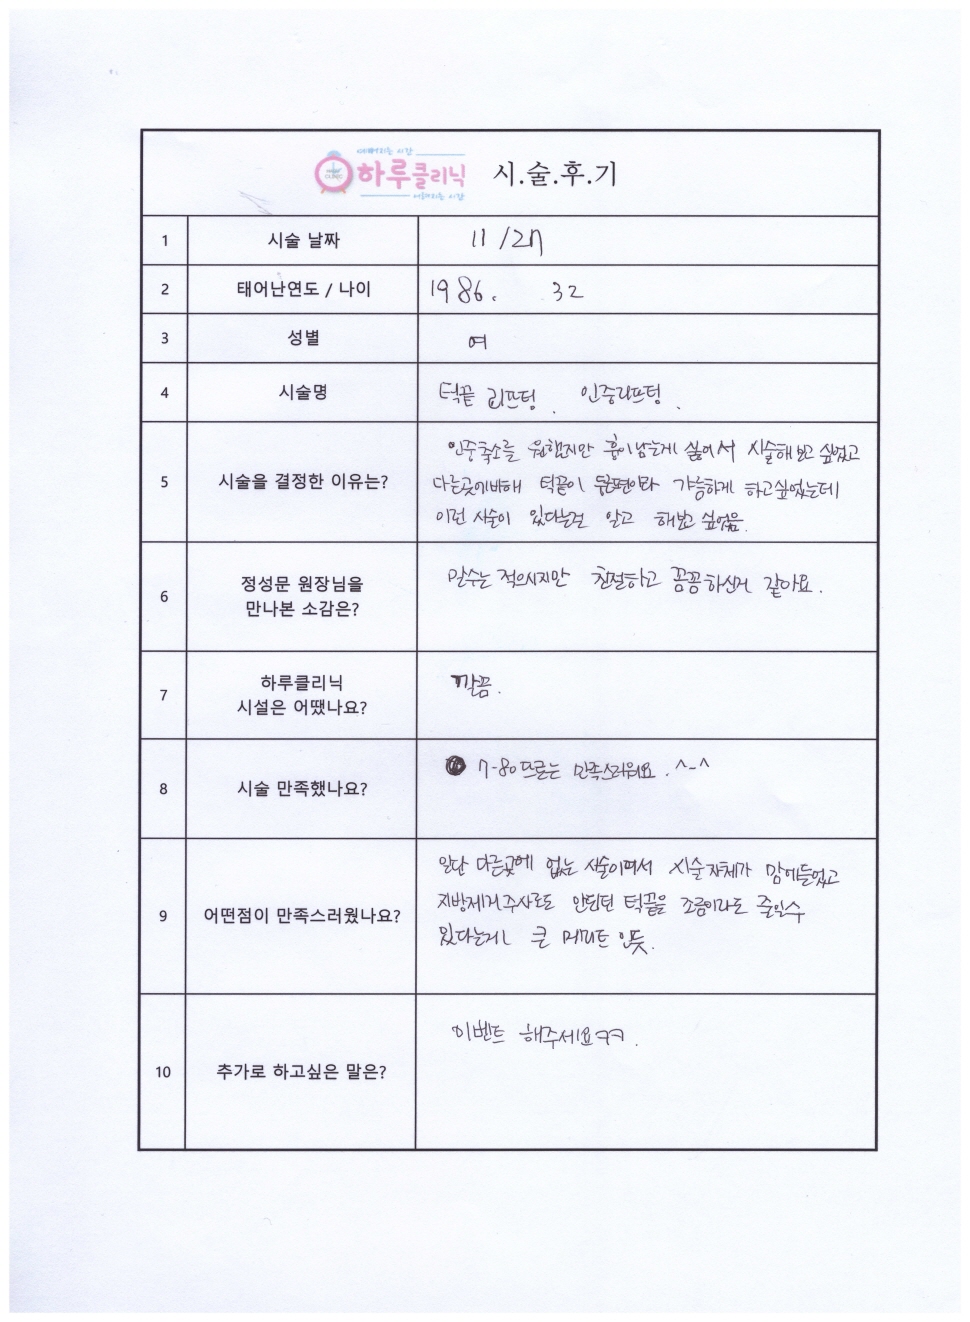 예뻐지는 시간
하루클리닉 시.술.후.기
어려지는 시간
1 시술 날짜 11/27
2 태어난연도 / 나이 1986. 32
3 성별 여
4 시술명 턱끝 리프팅. 인중리프팅.
5 시술을 결정한 이유는?
인중축소를 원했지만 흉이남는게 싫어서 시술해보고 싶었고
다른곳에비해 턱끝이 뭉편이라 갸름하게 하고싶었는데
이런 시술이 있다는걸 알고 해보고 싶었음.
6 정성문 원장님을
만나본 소감은?
말수는 적으시지만 친절하고 꼼꼼하신거 같아요.
7 하루클리닉
시설은 어땠나요?
깔끔.
8 시술 만족했나요? 7-80프로는 만족스러워요. ^-^
9 어떤점이 만족스러웠나요?
일단 다른곳에 없는 시술이여서 시술자체가 맘에들었고
지방제거주사로도 안된던 턱끝을 조금이라도 줄일수
있다는게 큰 메리트 인듯.
10 추가로 하고싶은 말은? 이벤트 해주세요ㅋㅋ.